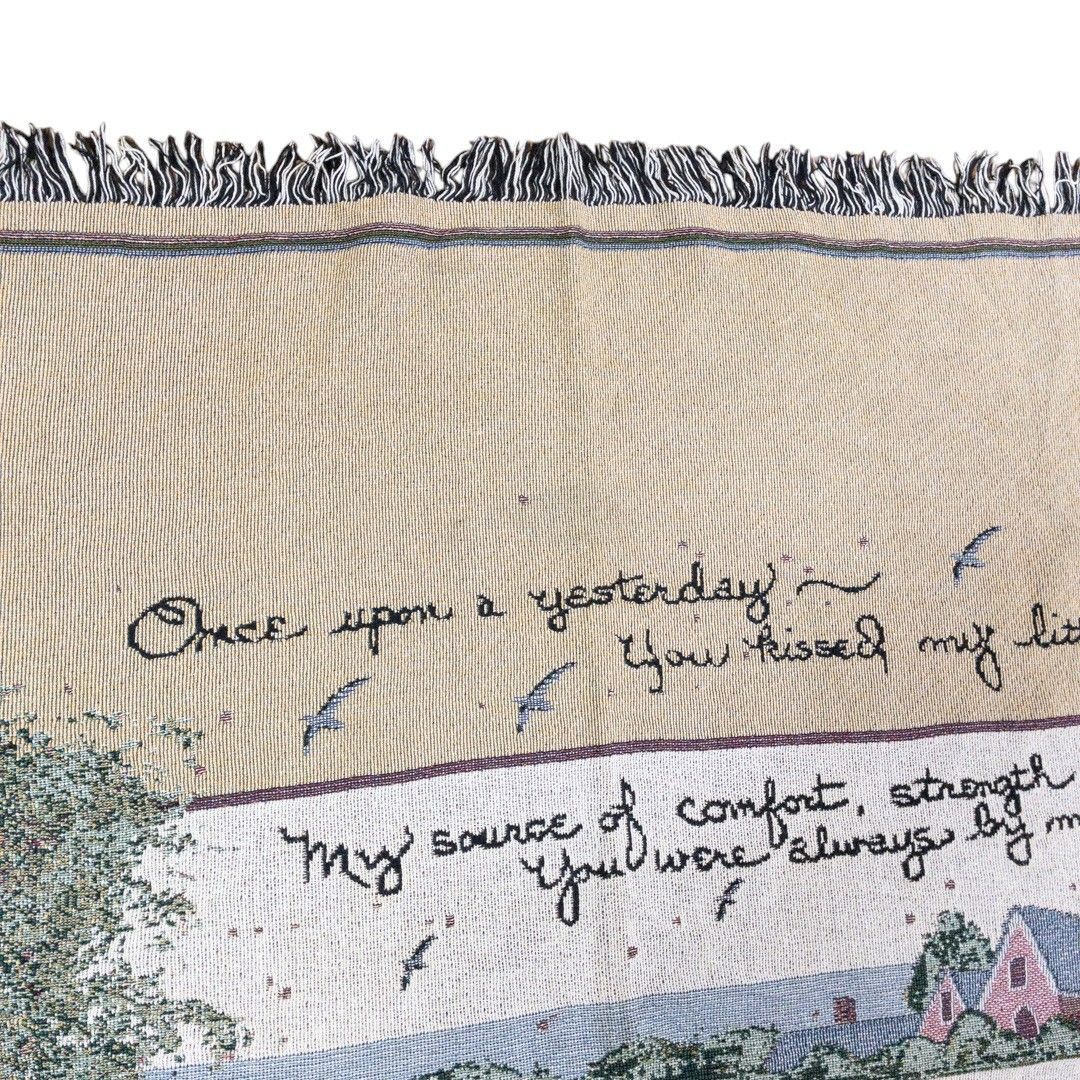 Once upon a yesterday ~
You kissed my lit
My source of comfort, strength
You were always by m